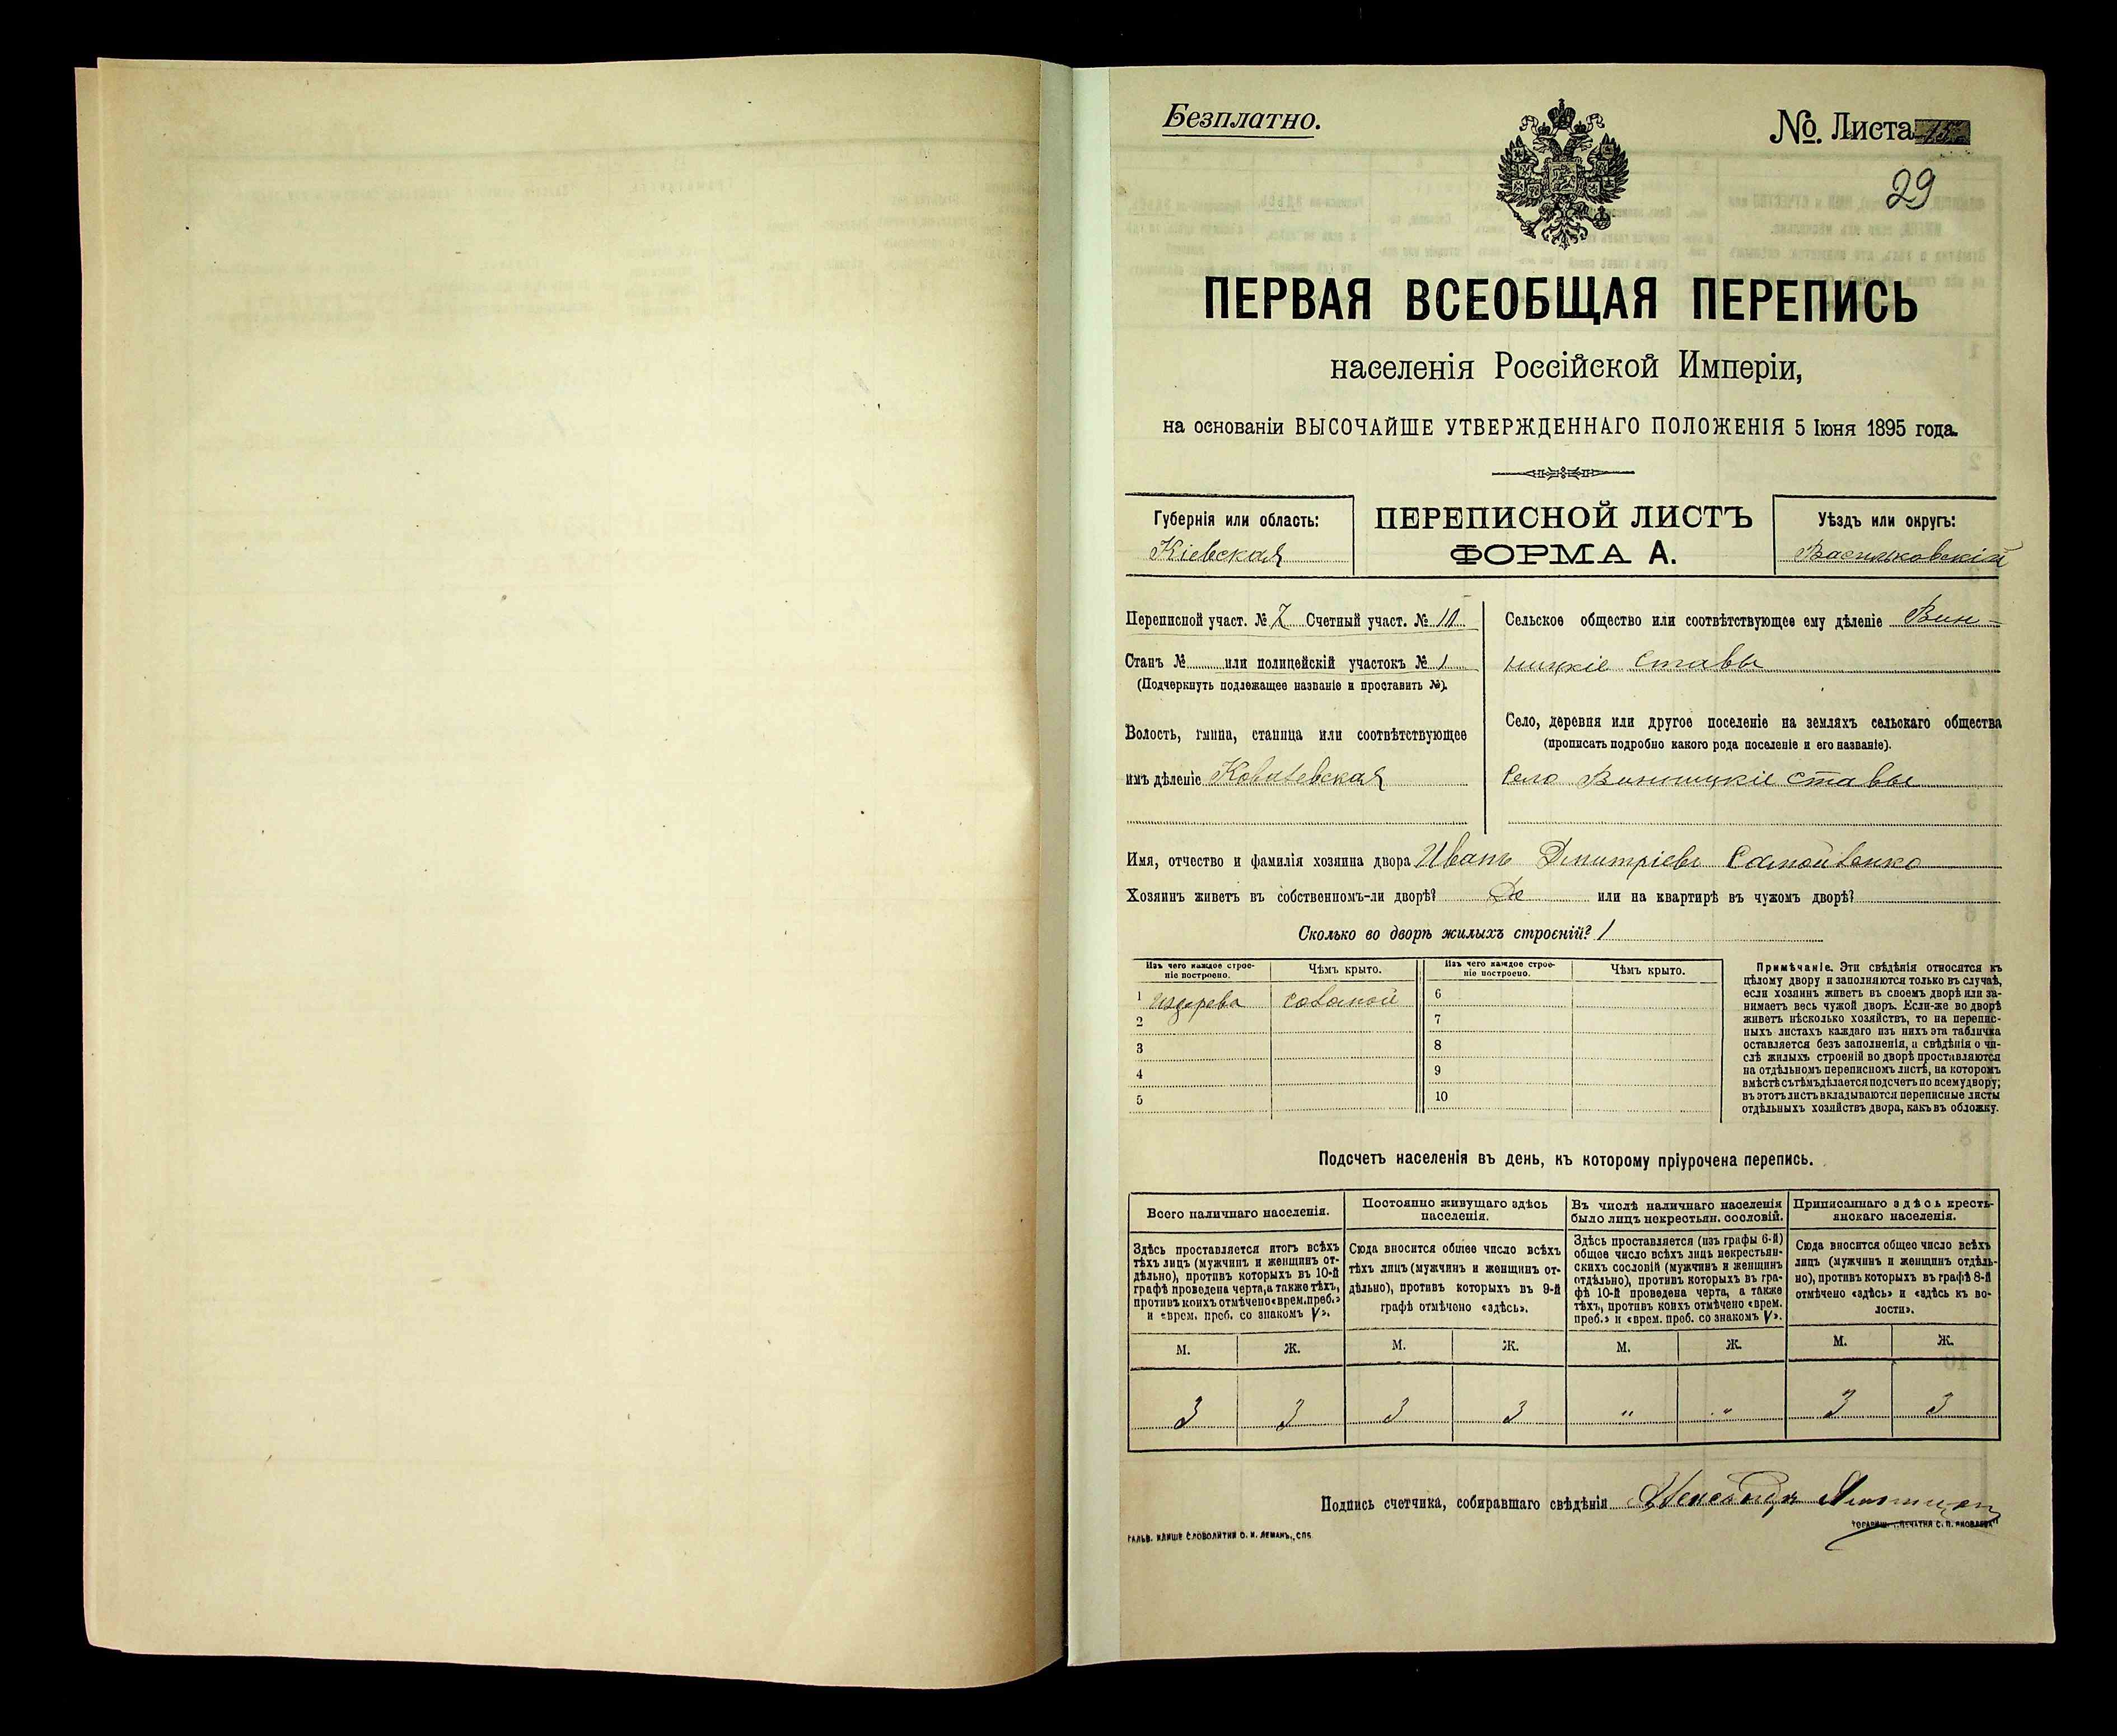 Безплатно.
№ Листа 15
29
ПЕРВАЯ ВСЕОБЩАЯ ПЕРЕПИСЬ
населенія Россійской Имперіи,
на основаніи ВЫСОЧАЙШЕ УТВЕРЖДЕННАГО ПОЛОЖЕНІЯ 5 Іюня 1895 года.
Губернія или область:
Кіевская
ПЕРЕПИСНОЙ ЛИСТЪ
ФОРМА А.
Уѣздъ или округъ:
Васильковскій
Переписной участ. № 7 Счетный участ. № 10
Станъ № или полицейскій участокъ № 1
(Подчеркнуть подлежащее названіе и проставить №).
Волость, гмина, станица или соотвѣтствующее
имъ дѣленіе Ковалевская
Сельское общество или соотвѣтствующее ему дѣленіе Вин-
ницкіе Ставы
Село, деревня или другое поселеніе на земляхъ сельскаго общества
(прописать подробно какого рода поселеніе и его названіе).
Село Винницкіе Ставы
Имя, отчество и фамилія хозяина двора Иванъ Дмитріевъ Самойленко
Хозяинъ живетъ въ собственномъ-ли дворѣ? Да или на квартирѣ въ чужомъ дворѣ?
Сколько во дворѣ жилыхъ строеній? 1
Изъ чего каждое строе-
ніе построено.
Чѣмъ крыто.
Изъ чего каждое строе-
ніе построено.
Чѣмъ крыто.
1 издерева соломой 6
2 7
3 8
4 9
5 10
Примѣчаніе. Эти свѣдѣнія относятся къ
цѣлому двору и заполняются только въ случаѣ,
если хозяинъ живетъ въ своемъ дворѣ или за-
нимаетъ весь чужой дворъ. Если-же во дворѣ
живетъ нѣсколько хозяйствъ, то на перепис-
ныхъ листахъ каждаго изъ нихъ эта табличка
оставляется безъ заполненія, а свѣдѣнія о чи-
слѣ жилыхъ строеній во дворѣ проставляются
на отдѣльномъ переписномъ листѣ, на которомъ
вмѣстѣ съ тѣмъ дѣлается подсчетъ по всему двору;
въ этотъ листъ вкладываются переписные листы
отдѣльныхъ хозяйствъ двора, какъ въ обложку.
Подсчетъ населенія въ день, къ которому пріурочена перепись.
Всего наличнаго населенія.
Здѣсь проставляется итогъ всѣхъ
тѣхъ лицъ (мужчинъ и женщинъ от-
дѣльно), противъ которыхъ въ 10-й
графѣ проведена черта, а также тѣхъ,
противъ коихъ отмѣчено «врем. преб.»
и «врем. преб. со знакомъ V».
Постоянно живущаго здѣсь
населенія.
Сюда вносится общее число всѣхъ
тѣхъ лицъ (мужчинъ и женщинъ от-
дѣльно), противъ которыхъ въ 9-й
графѣ отмѣчено «здѣсь».
Въ числѣ наличнаго населенія
было лицъ некрестьян. сословій.
Здѣсь проставляется (изъ графы 6-й)
общее число всѣхъ лицъ некрестьян-
скихъ сословій (мужчинъ и женщинъ
отдѣльно), противъ которыхъ въ гра-
фѣ 10-й проведена черта, а также
тѣхъ, противъ коихъ отмѣчено «врем.
преб.» и «врем. преб. со знакомъ V».
Приписаннаго здѣсь кресть-
янскаго населенія.
Сюда вносится общее число всѣхъ
лицъ (мужчинъ и женщинъ отдѣль-
но), противъ которыхъ въ графѣ 8-й
отмѣчено «здѣсь» и «здѣсь къ во-
лости».
М. Ж. М. Ж. М. Ж. М. Ж.
3 3 3 3 " " 3 3
Подпись счетчика, собиравшаго свѣдѣнія Александръ
ГАЛЬВ. КЛИШЕ СЛОВОЛИТНИ О. И. ЛЕМАНЪ, СПБ.
ТОВАРИЩ. „ПЕЧАТНЯ С. П. ЯКОВЛЕВА"